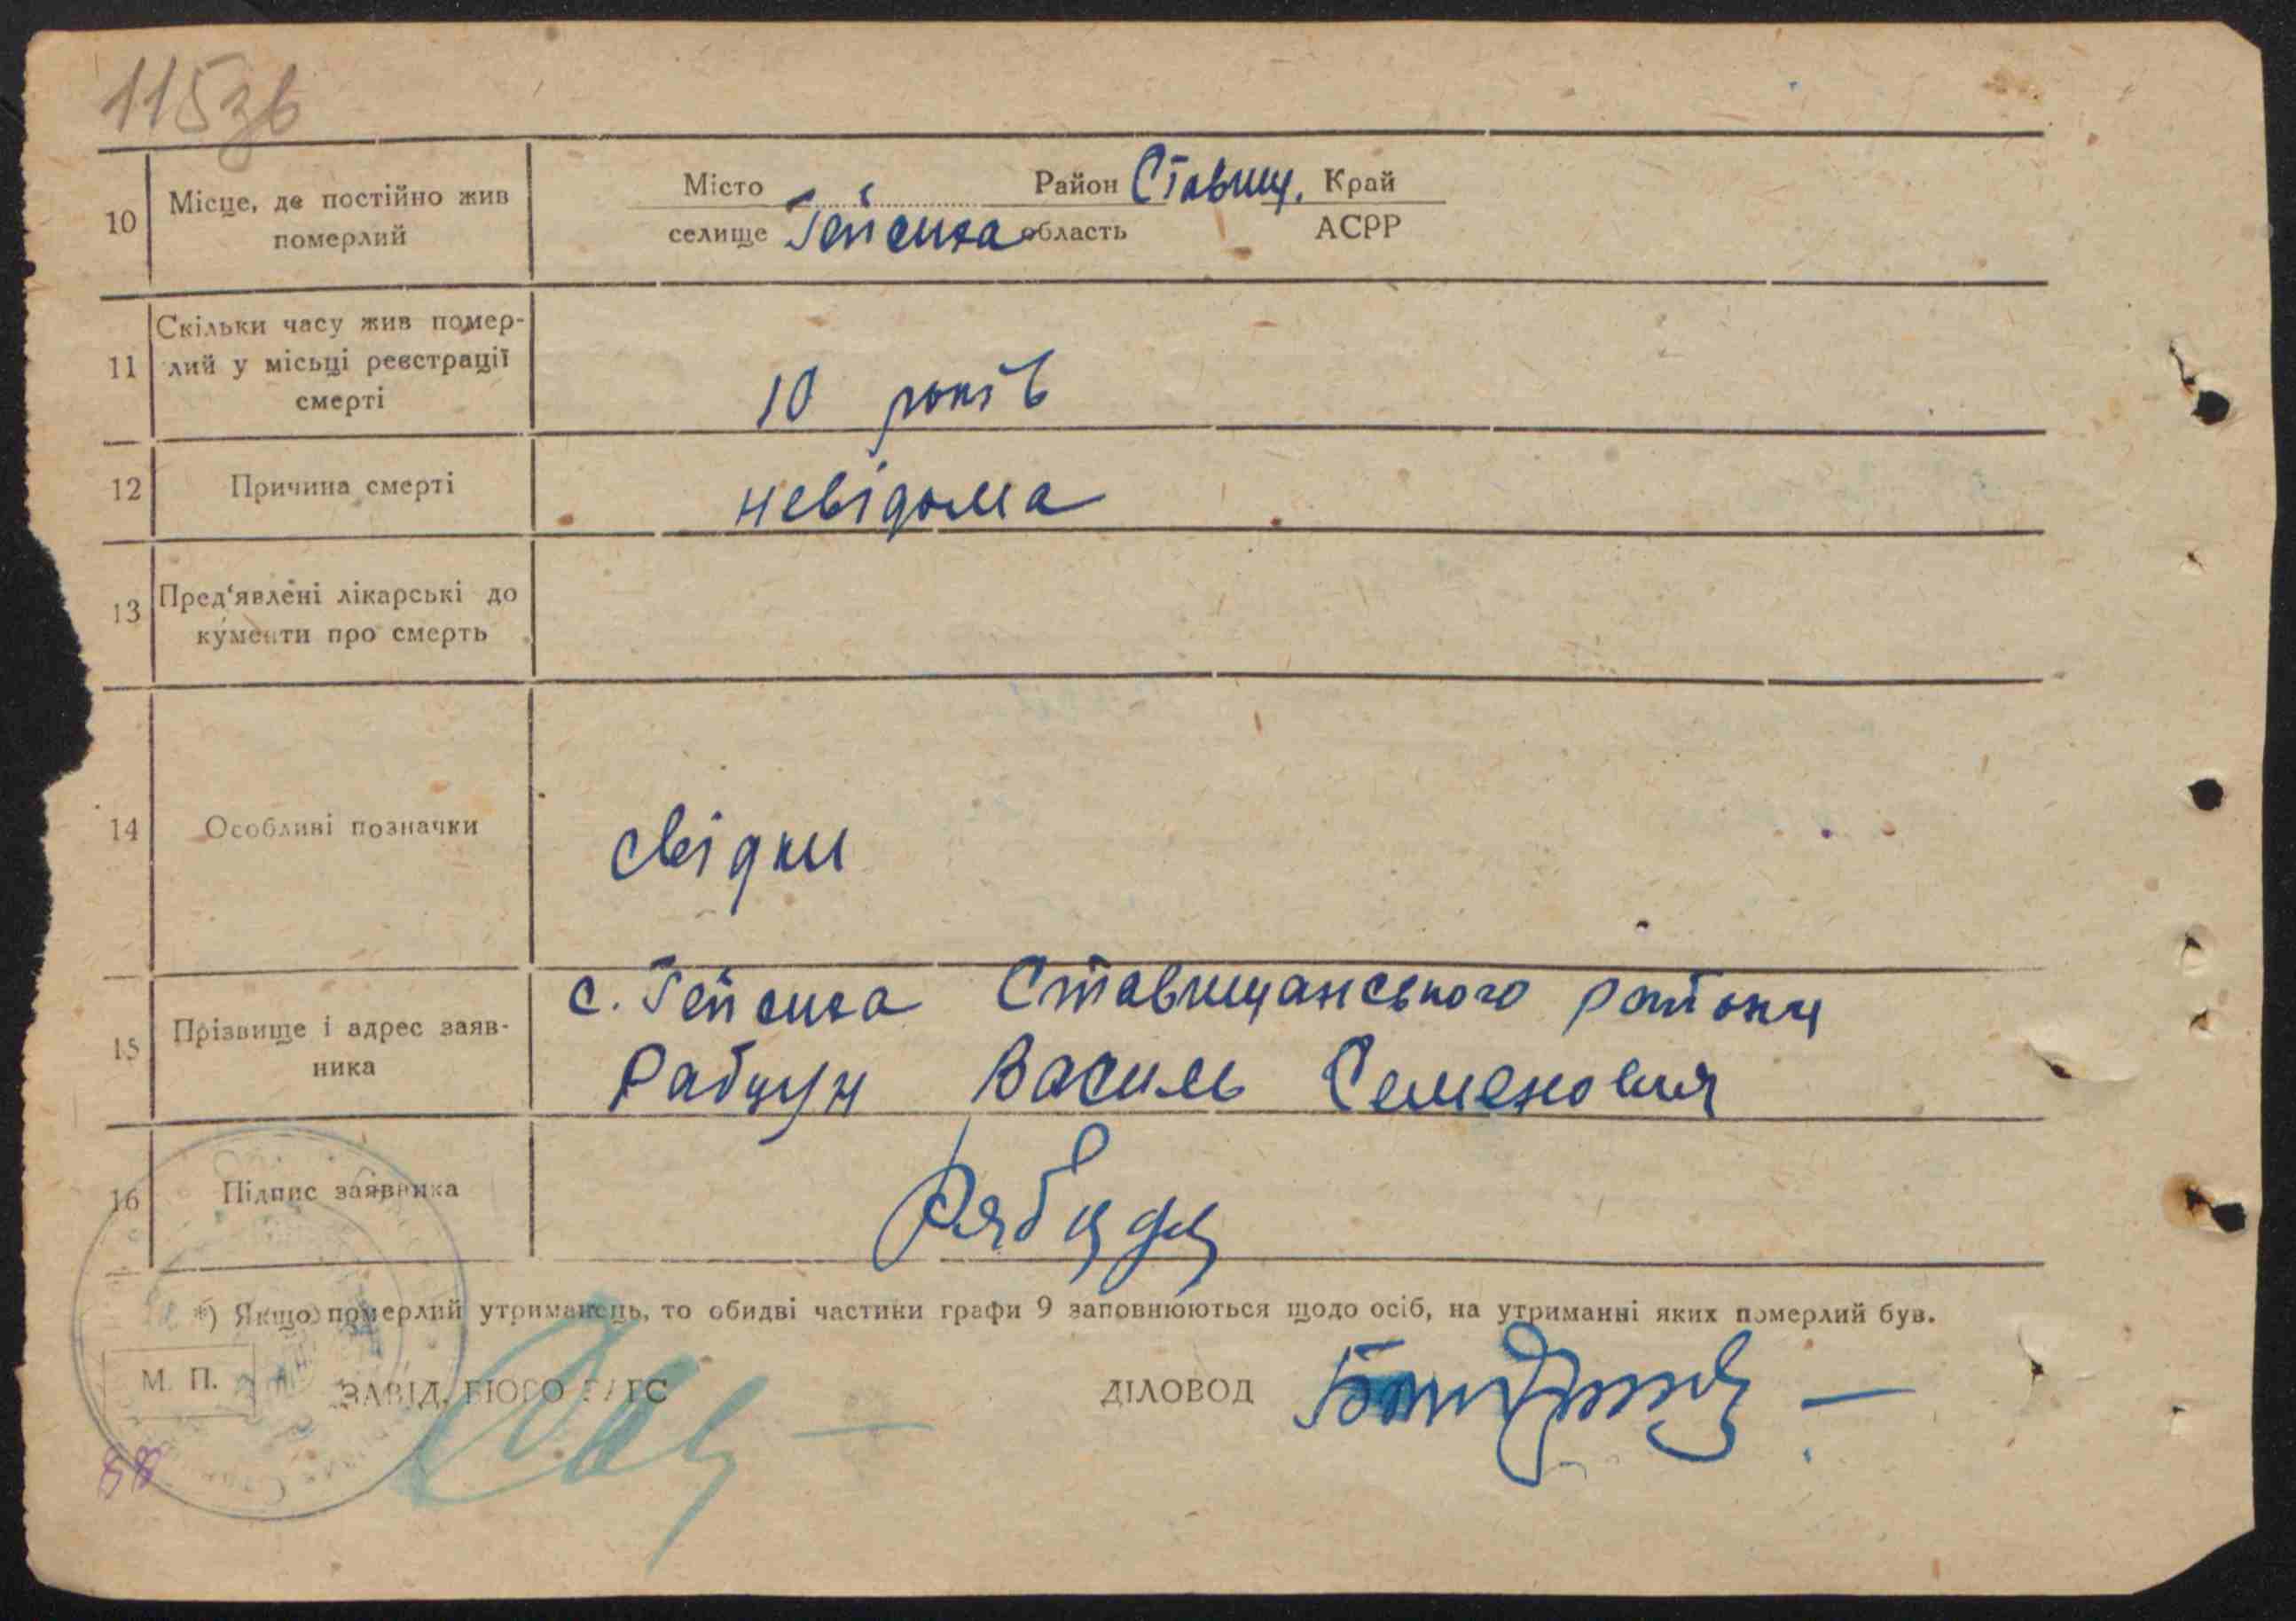 115зв
10 Місце, де постійно жив померлий
Місто Район Ставищ. Край
селище Гейсиха область АСРР
11 Скільки часу жив помер-
лий у місьці реєстрації
смерті
10 років
12 Причина смерті невідома
13 Пред'явлені лікарські до
кументи про смерть
14 Особливі позначки
свідки
15 Прізвище і адрес заяв-
ника
с. Гейсиха Ставищанського району
Рабцун Василь Семенович
16 Підпис заявника
*) Якщо померлий утриманець, то обидві частини графи 9 заповнюються щодо осіб, на утриманні яких померлий був.
М. П. ЗАВІД. БЮРО ЗАГС ДІЛОВОД